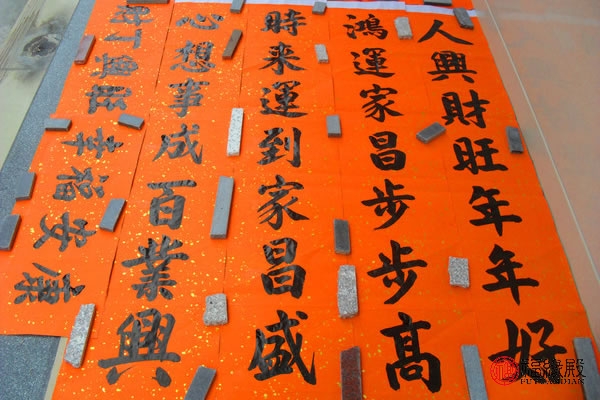 人興財旺年年好
鴻運家昌步步高
時来運到家昌盛
心想事成百業興
丁 旺幸福安康
福緣殿
FUYUANDIAN